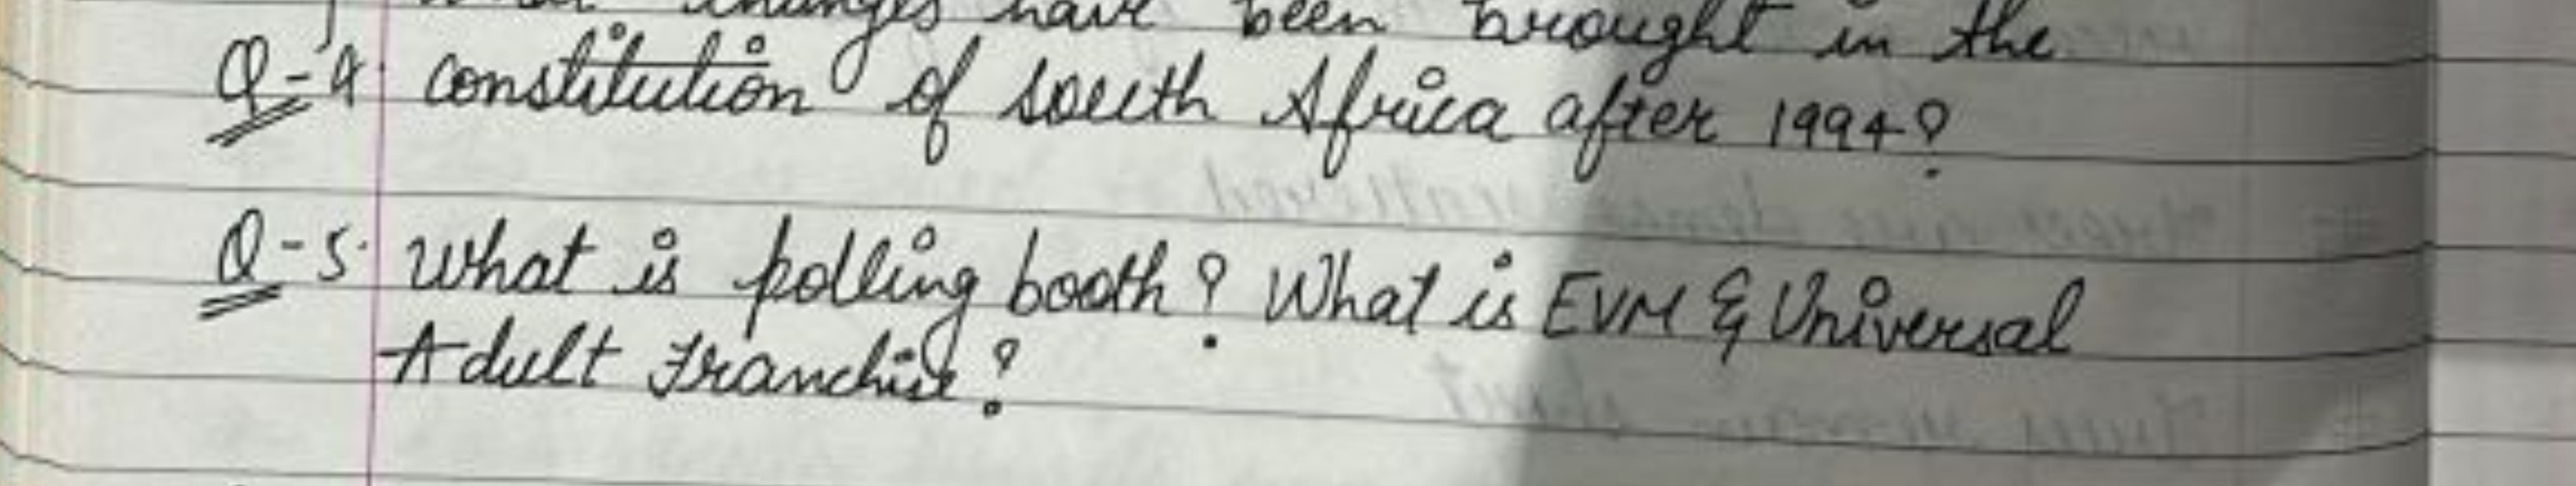 What changes have been brought in the
Q-4 constitution of south Africa after 1994?
Q-5. What is polling booth? What is EVM & Universal
Adult Franchise?